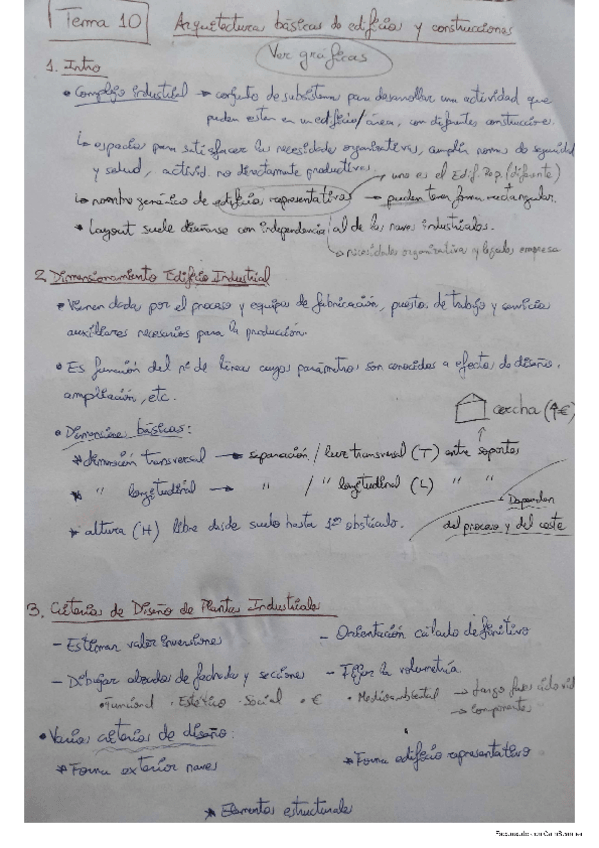 Tema 10 Arquitectura básicas de edificios y construcciones
Ver gráficas
1. Intro
• Complejo industrial → conjunto de subsistema para desarrollar una actividad que
pueden estar en un edificio/área, con diferentes construccione.
↳ espacios para satisfacer las necesidades organizativas, cumplir normas de seguridad
y salud, activid. no directamente productivas.
→ uno es el Edif. Rep. (diferente)
↳ nombre genérico de edificios representativos → pueden tener forma rectangular.
• Layout suele diseñarse con independencia al de las naves industriales.
↳ necesidades organizativa y legales empresa
2. Dimensionamiento Edificio Industrial
• Vienen dada por el proceso y equipos de fabricación, puesto de trabajo y servicios
auxiliares necesarios para la producción.
• Es función del nº de líneas cuyos parámetros son conocidos a efectos de diseño,
ampliación, etc.
cercha (↑€)
• Dimensiones básicas:
* dimensión transversal → separación / luz transversal (T) entre soportes
* " longitudinal → " / " longitudinal (L) " "
→ Dependen
* altura (H) libre desde suelo hasta 1er obstáculo.
del proceso y del coste
3. Criterios de Diseño de Plantas Industriales
- Estimar valor inversione
- Orientación cálculo definitivo
- Dibujar alzados de fachada y secciones
- Fijar la volumetría
• Funcional • Estético • Social • € • Medioambiental → largo fases ciclo vid
→ componentes
• Varios criterios de diseño:
* Forma exterior naves
* Forma edificio representativo
* Elementos estructurales